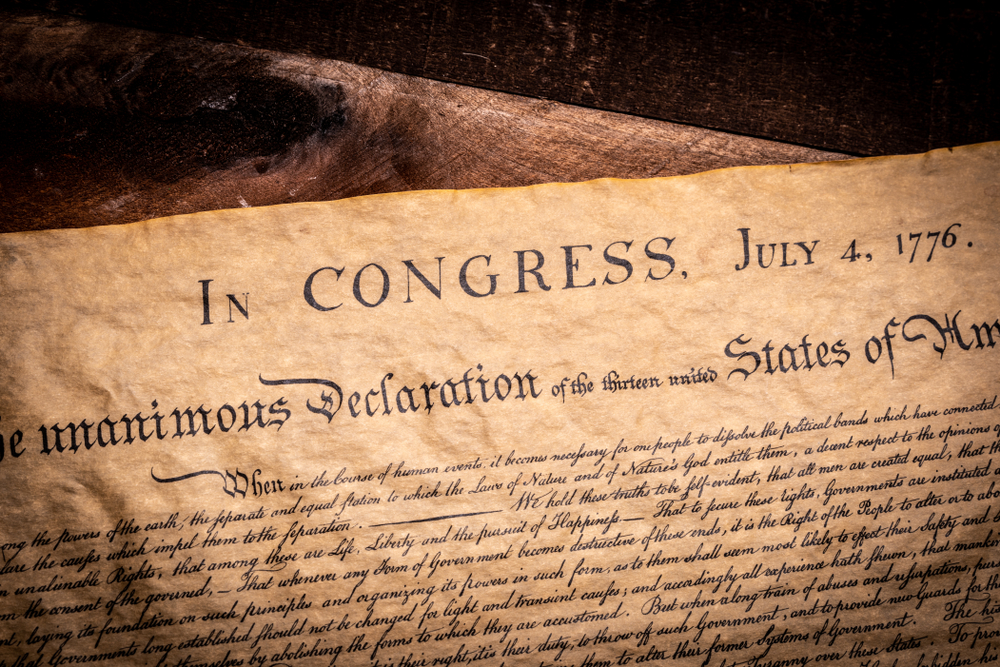 In CONGRESS, July 4, 1776.
he unanimous Declaration of the thirteen united States of Am
When in the Course of human events, it becomes neceſsary for one people to diſsolve the political bands which have connected
ong the powers of the earth, the ſeparate and equal ſtation to which the Laws of Nature and of Nature's God entitle them, a decent respect to the opinions o
are the cauſes which impel them to the ſeparation. — We hold these truths to be ſelf-evident, that all men are created equal, that th
n unalienable Rights, that among these are Life, Liberty and the pursuit of Happineſs.— That to secure these rights, Governments are instituted
m the consent of the governed, — That whenever any Form of Government becomes destructive of these ends, it is the Right of the People to alter or to abo
nt, laying its foundation on such principles and organizing its powers in such form, as to them shall seem most likely to effect their Safety and
that Governments long established ſhould not be changed for light and transient cauſes; and accordingly all experience hath ſhewn, that mankin
themselves by abolishing the forms to which they are accustomed. But when a long train of abuses and uſurpations, pur
it is their right, it is their duty, to throw off such Government, and to provide new Guards for th
them to alter their former Systems of Government. The his
Tyranny over these States. To pro